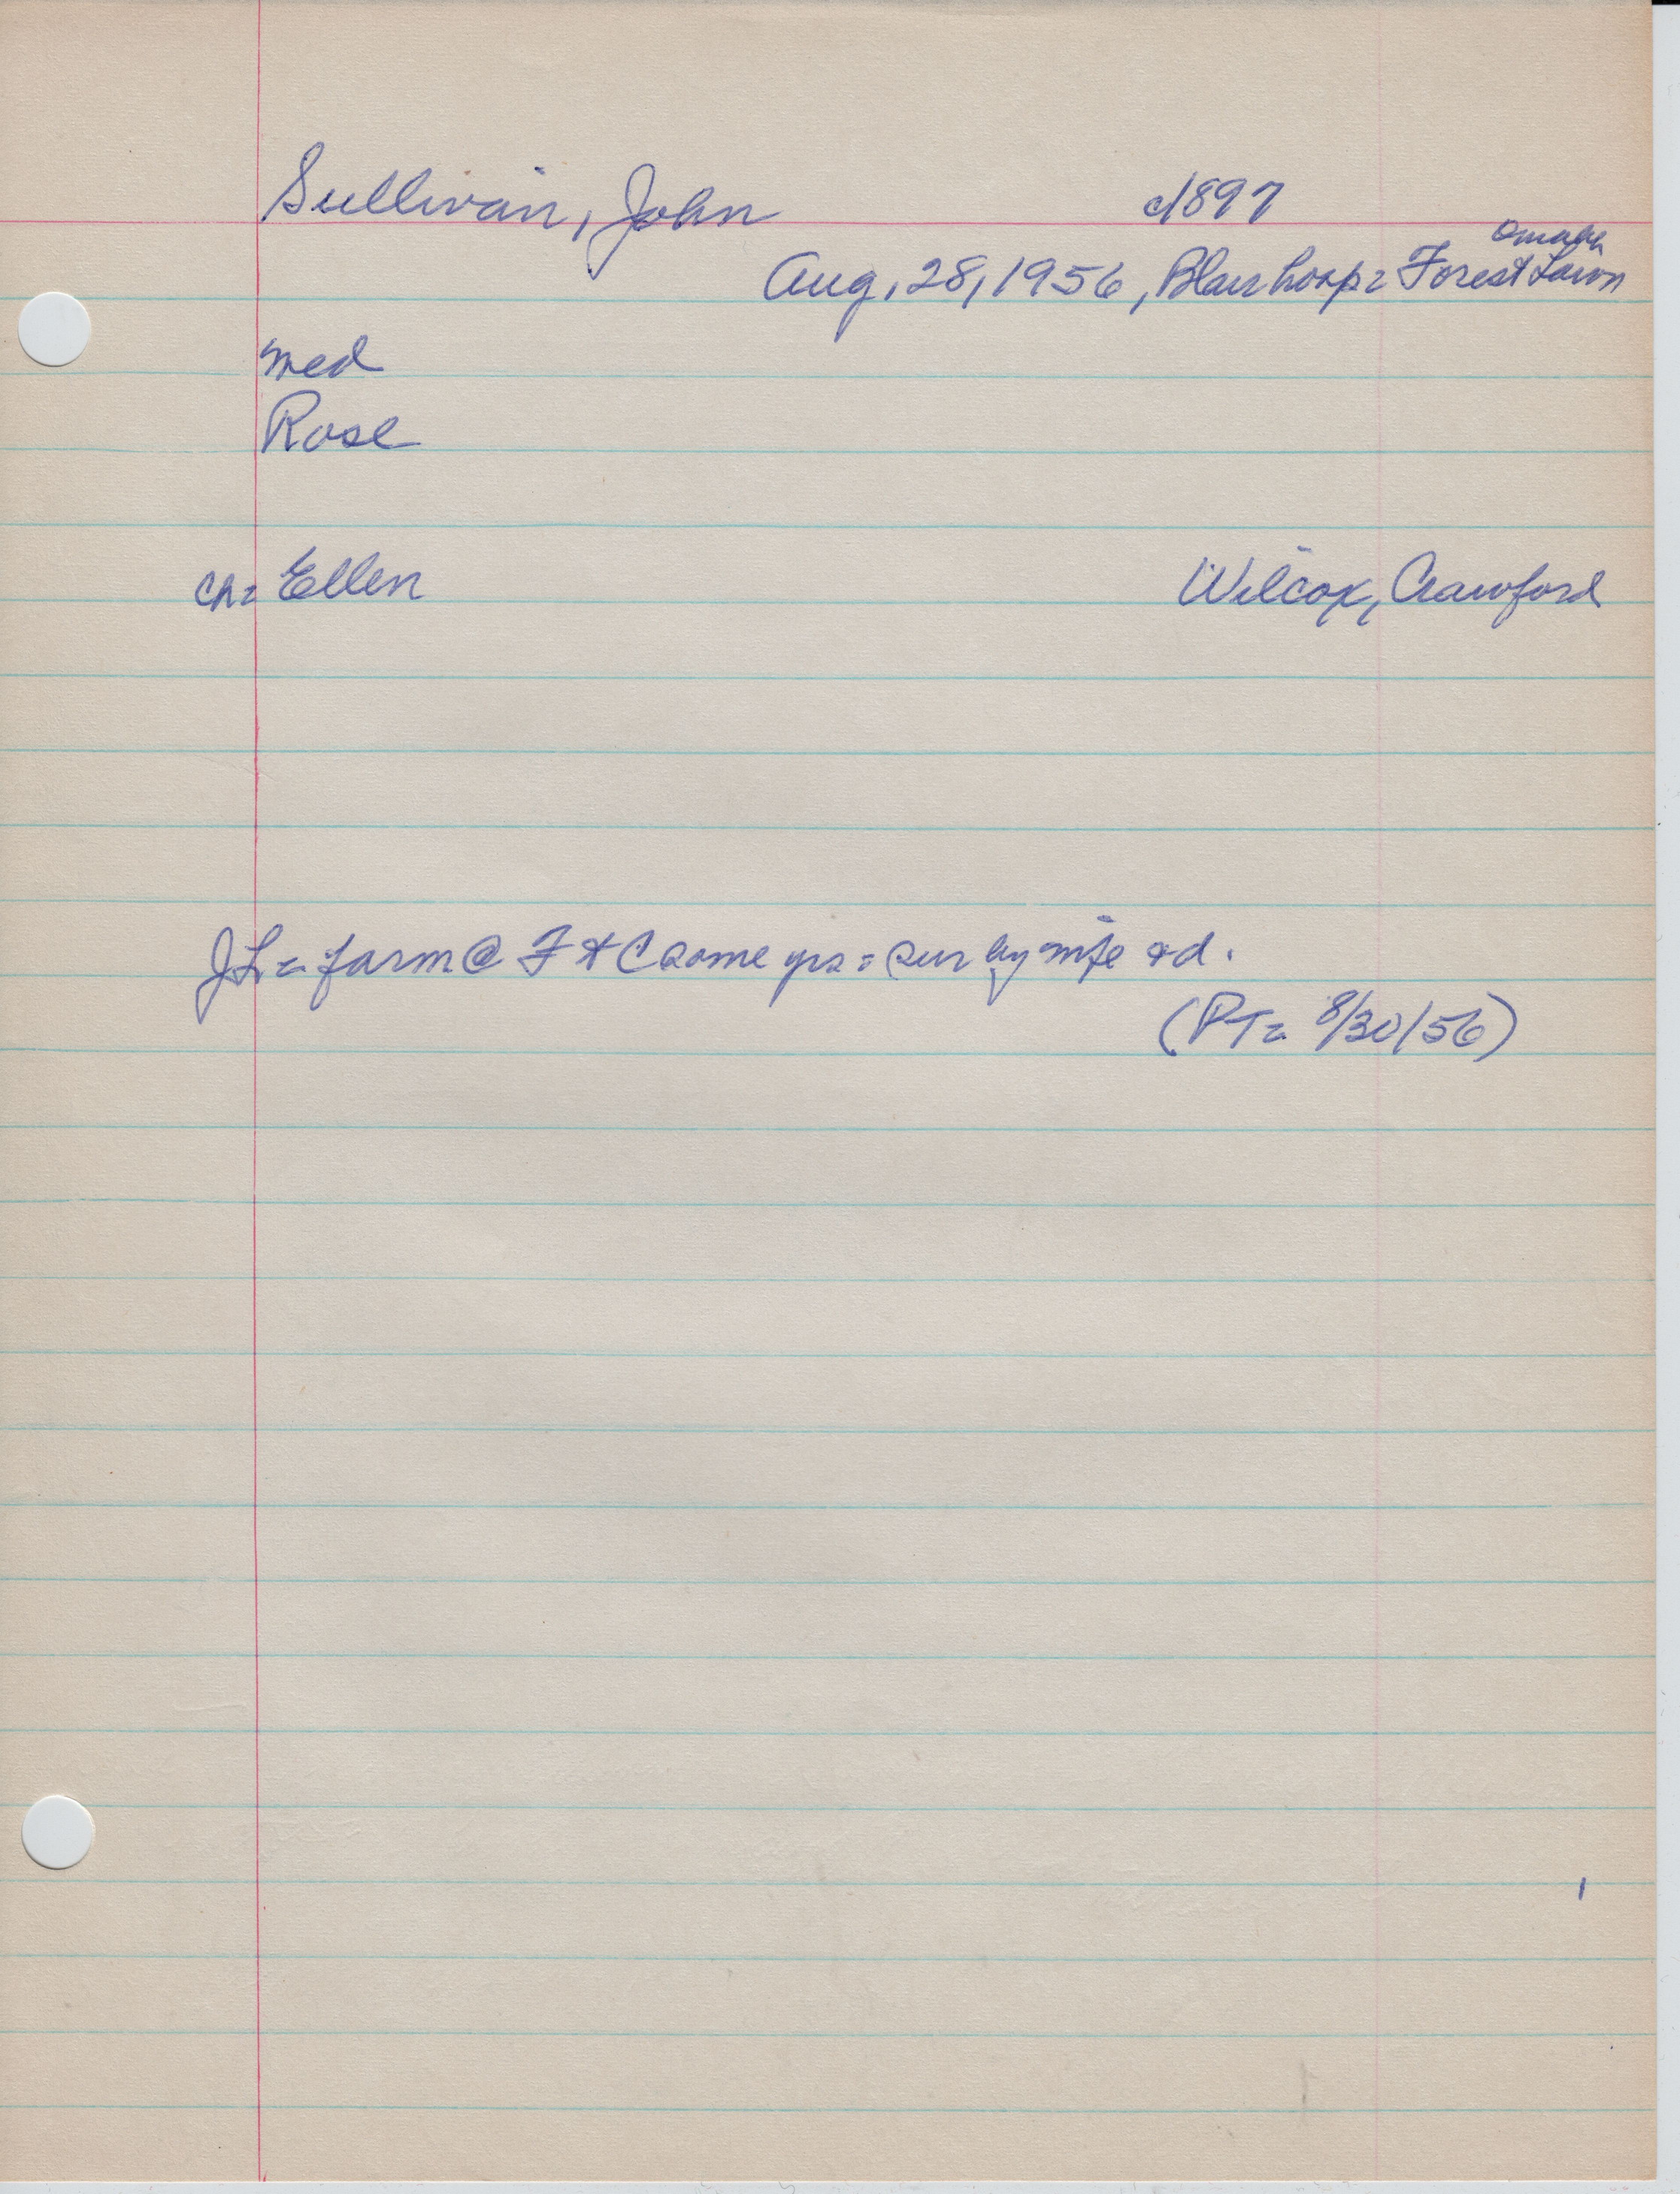 Sullivan, John c1897
Omaha
Aug. 28, 1956, Blair hosp = Forest Lawn
med
Rose
ch = Ellen Wilcox, Crawford
= farm @ F & C some yrs = sur by wife & d.
(PT = 8/30/56)